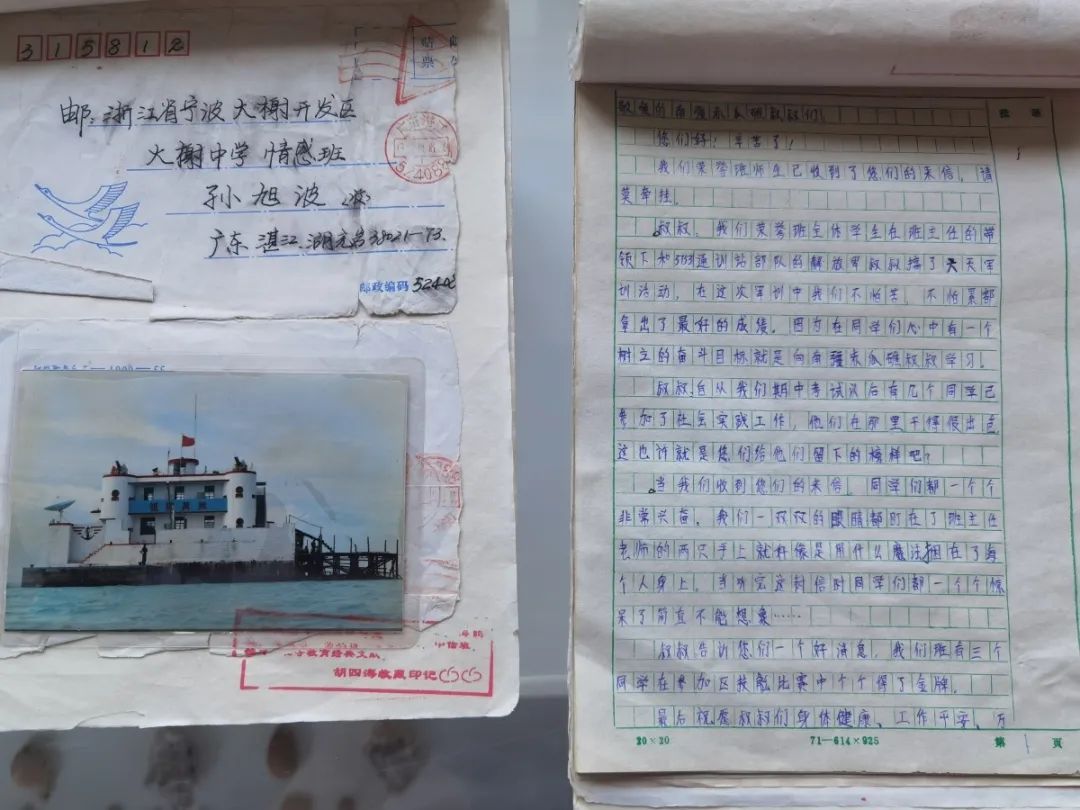 315812
邮:浙江省宁波大榭开发区
大榭中学 情感班
孙旭波 (收)
广东.湛江.湖光岩38021-73.
邮政编码 5240
贴
票
胡四海收藏印记
敬爱的南疆赤瓜礁叔叔们!
您们好!辛苦了!
我们荣誉班师生已收到了您们的来信,请
莫牵挂。
叔叔,我们荣誉班全体学生在班主任的带
领下和 通训站部队的解放军叔叔搞了 天军
训活动,在这次军训中我们不怕苦,不怕累都
拿出了最好的成绩。因为在同学们心中有一个
树立的奋斗目标就是向南疆赤瓜礁叔叔学习!
叔叔自从我们期中考试以后有几个同学已
参加了社会实践工作,他们在那里干得很出色
这也许就是您们给他们留下的榜样吧?
当我们收到您们的来信,同学们都一个个
非常兴奋,我们一双双的眼睛都盯在了班主任
老师的两只手上就好像是用什么魔法捆在了每
个人身上,当听完这封信时同学们都一个个惊
呆了简直不能想象……
叔叔告诉您们一个好消息,我们班有三个
同学在参加区技能比赛中个个得了金牌。
最后祝愿叔叔们身体健康、工作平安、万
20×20
71—614×925
第 1 页